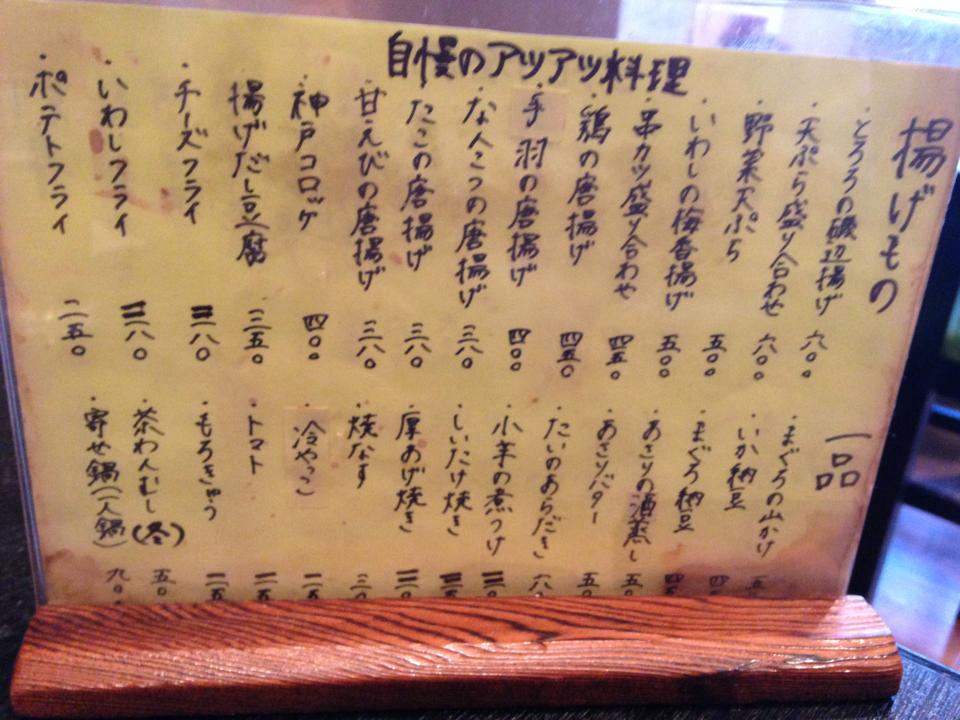 自慢のアツアツ料理
揚げもの
・とろろの磯辺揚げ 六〇〇
・天ぷら盛り合わせ 六〇〇
・野菜天ぷら 五〇〇
・いわしの梅香揚げ 五〇〇
・串カツ盛り合わせ 四五〇
・鶏の唐揚げ 四五〇
・手羽の唐揚げ 四〇〇
・なんこつの唐揚げ 三八〇
・たこの唐揚げ 三八〇
・甘えびの唐揚げ 三八〇
・神戸コロッケ 四〇〇
・揚げだし豆腐 三五〇
・チーズフライ 三八〇
・いわしフライ 三八〇
・ポテトフライ 二五〇
一品
・まぐろの山かけ
・いか納豆
・まぐろ納豆
・あさりの酒蒸し
・あさりバター
・たいのあらだき
・小芋の煮つけ
・しいたけ焼き
・厚あげ焼き
・焼なす
・冷やっこ
・トマト
・もろきゅう
・茶わんむし(冬) 五〇
・寄せ鍋(一人鍋) 九〇